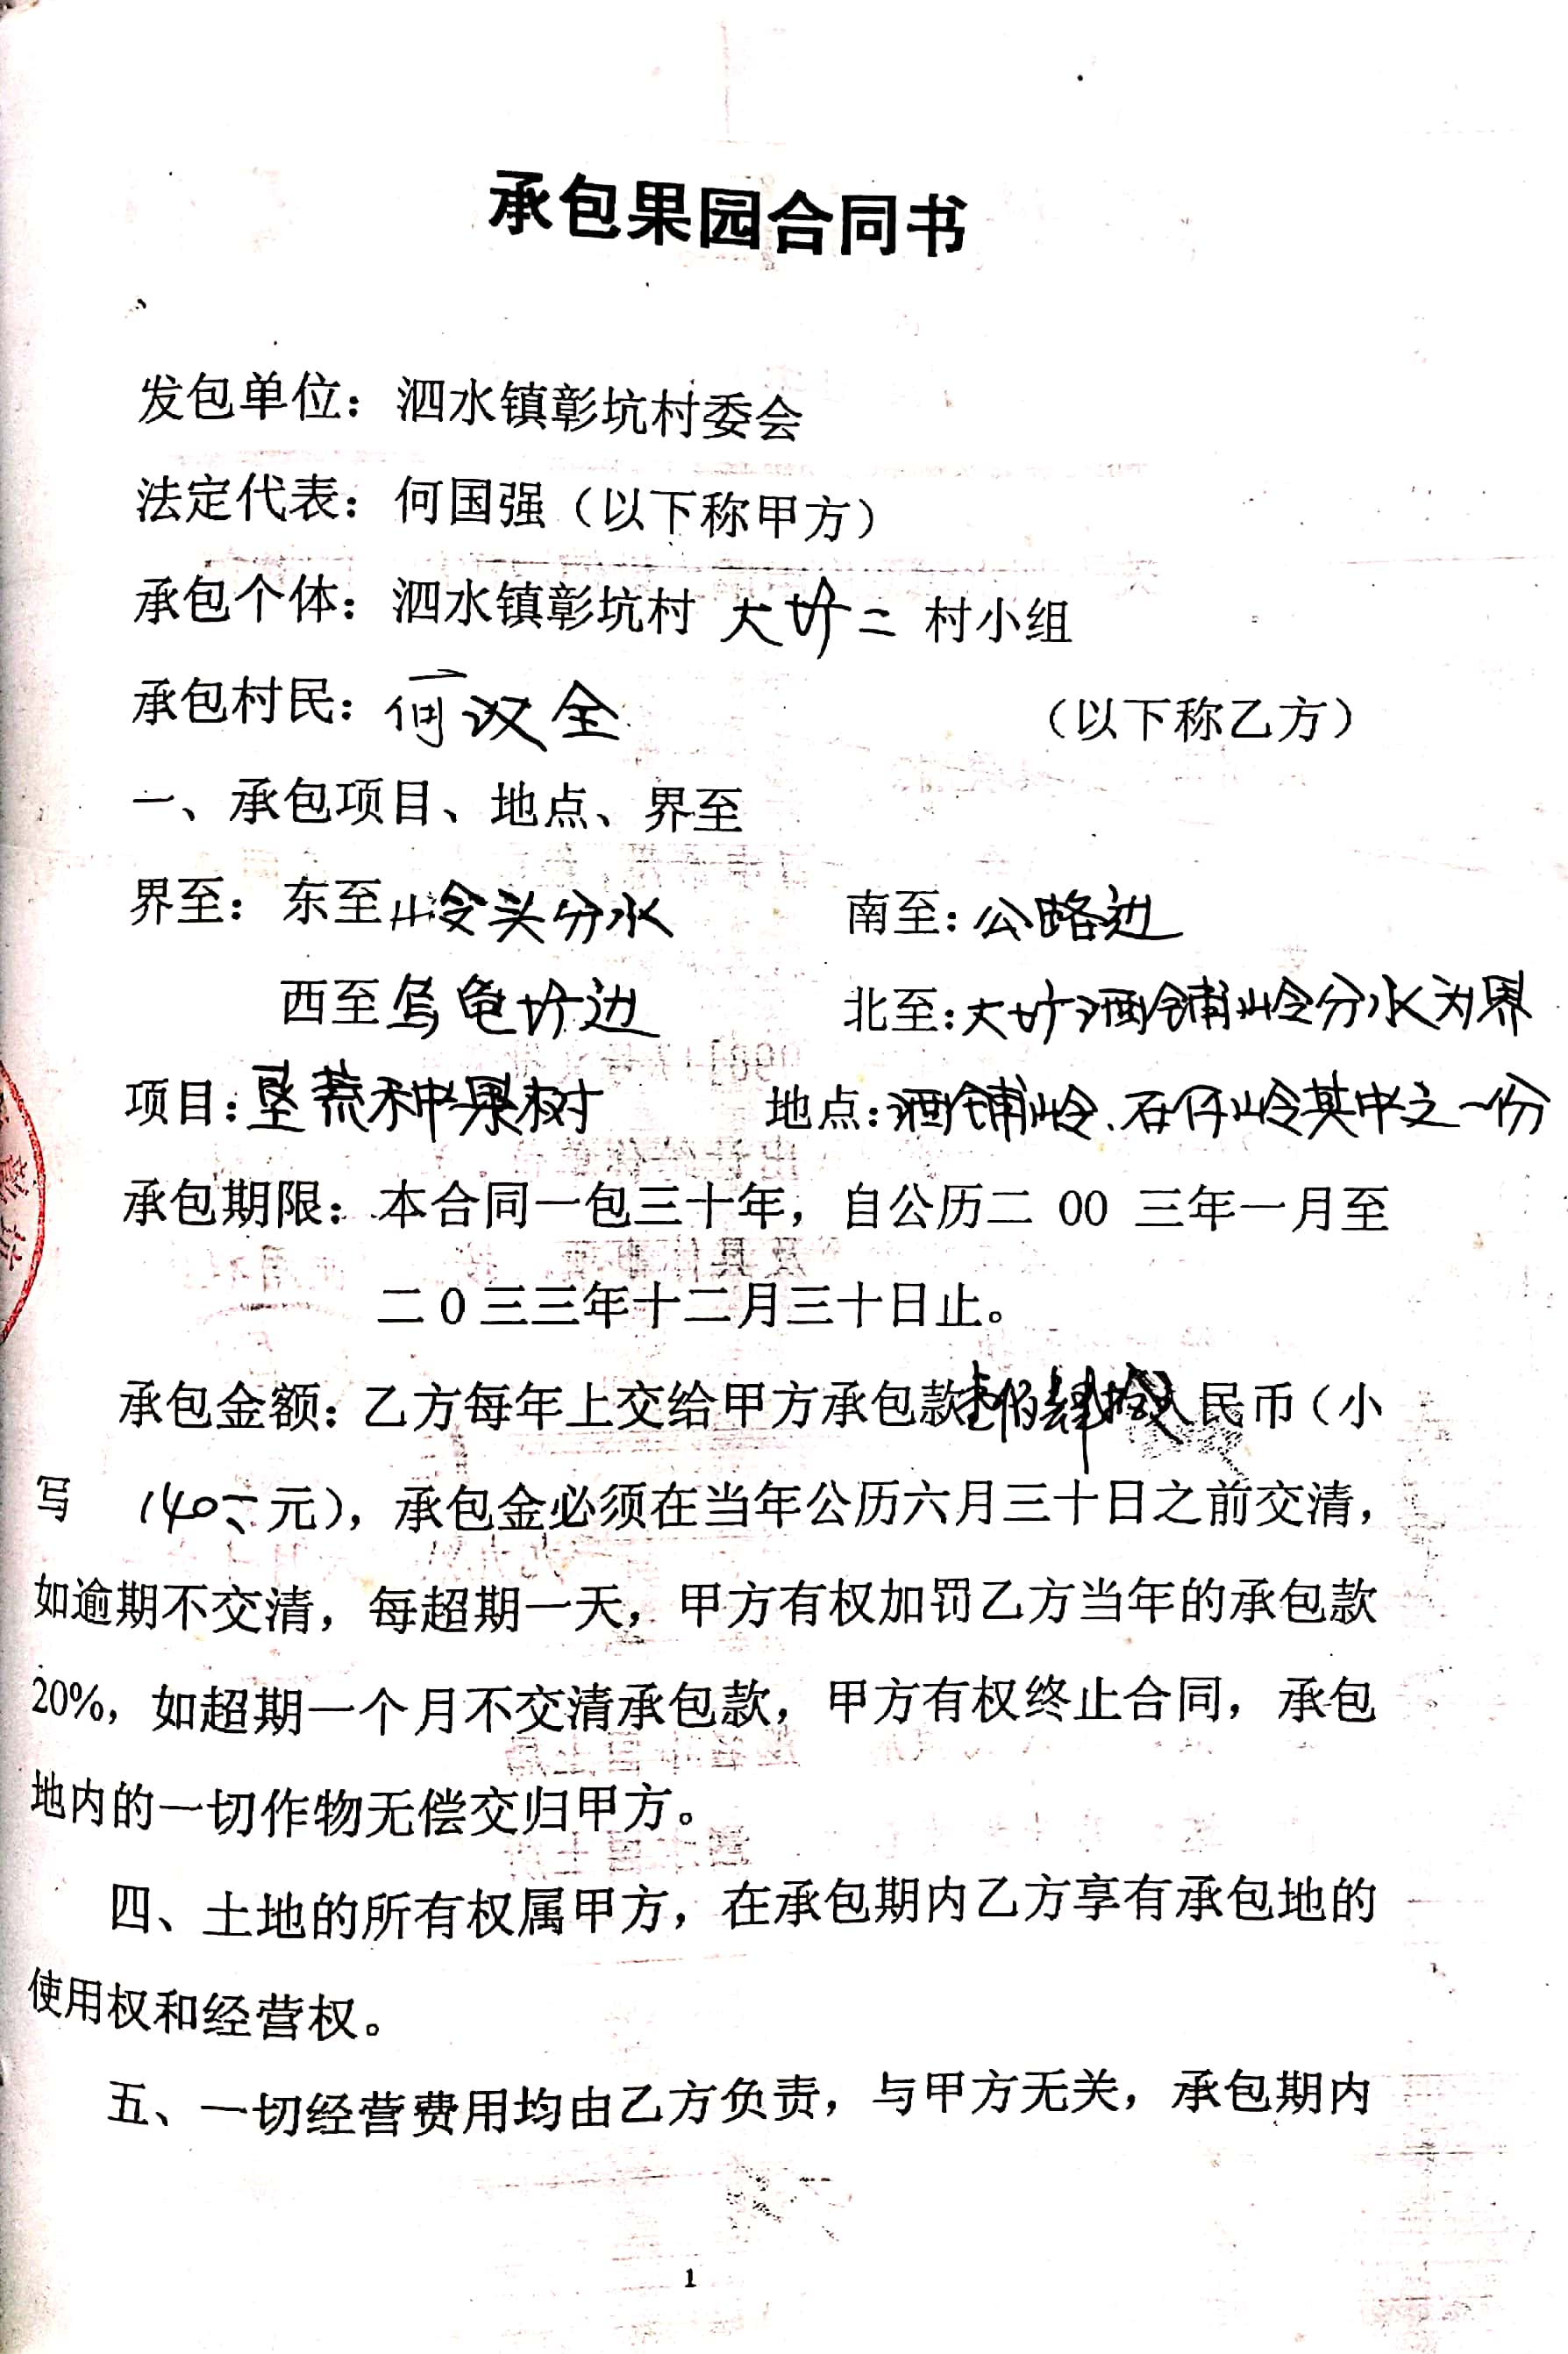 承包果园合同书
发包单位：泗水镇彰坑村委会
法定代表：何国强（以下称甲方）
承包个体：泗水镇彰坑村 大圿二 村小组
承包村民：何汉全 （以下称乙方）
一、承包项目、地点、界至
界至：东至岭头分水 南至：公路边
西至乌龟圿边 北至：大圿洒铺岭分水为界
项目：垦荒种果树 地点：洒铺岭、石仔岭其中之一份
承包期限：本合同一包三十年，自公历二 00 三年一月至
二 0 三三年十二月三十日止。
承包金额：乙方每年上交给甲方承包款壹佰肆拾人民币（小
写 140 元），承包金必须在当年公历六月三十日之前交清，
如逾期不交清，每超期一天，甲方有权加罚乙方当年的承包款
20%，如超期一个月不交清承包款，甲方有权终止合同，承包
地内的一切作物无偿交归甲方。
四、土地的所有权属甲方，在承包期内乙方享有承包地的
使用权和经营权。
五、一切经营费用均由乙方负责，与甲方无关，承包期内
1